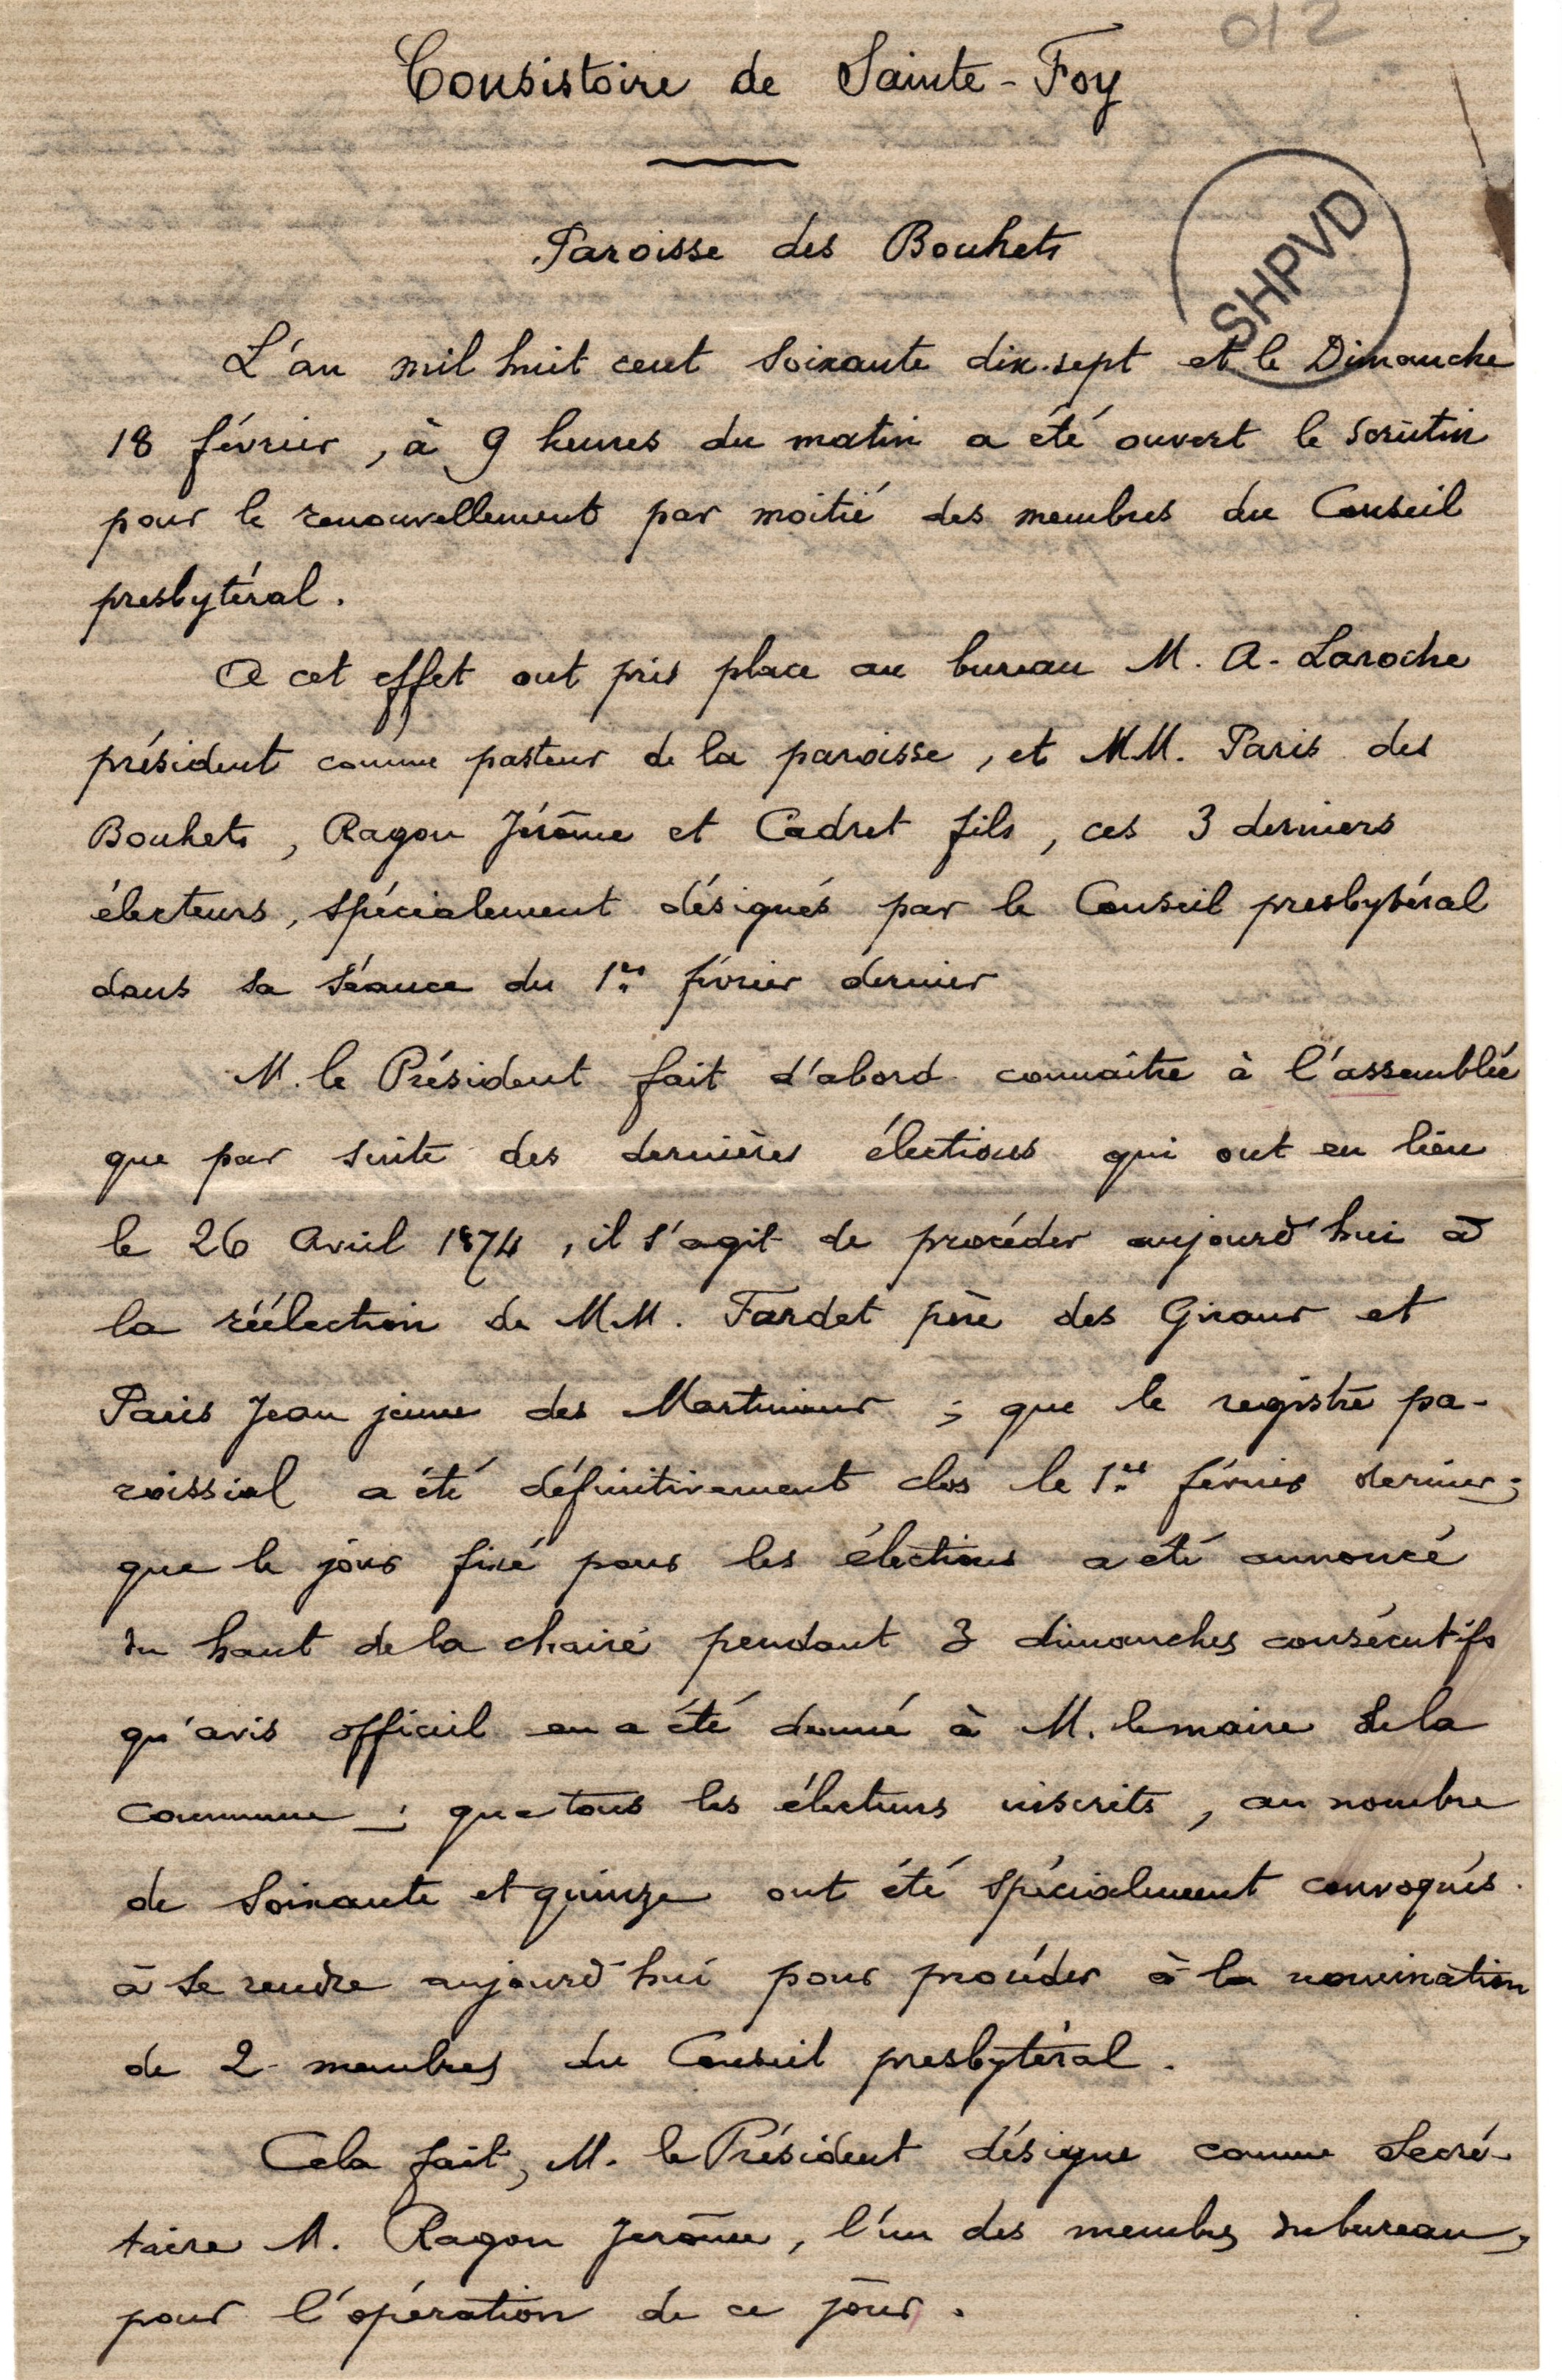 012
Consistoire de Sainte-Foy
Paroisse des Bouhets
SHPVD
L'an mil huit cent soixante dix-sept et le Dimanche
18 février, à 9 heures du matin a été ouvert le scrutin
pour le renouvellement par moitié des membres du Conseil
presbytéral.
A cet effet ont pris place au bureau M. A. Laroche
président comme pasteur de la paroisse, et MM. Paris des
Bouhets, Ragon Jérôme et Cadret fils, ces 3 derniers
électeurs, spécialement désignés par le Conseil presbytéral
dans sa séance du 1er février dernier
M. le Président fait d'abord connaître à l'assemblée
que par suite des dernières élections qui ont eu lieu
le 26 Avril 1874, il s'agit de procéder aujourd'hui à
la réélection de MM. Fardet père des Giraux et
Paris Jean jeune des Martineaux ; que le registre pa-
roissial a été définitivement clos le 1er février dernier ;
que le jour fixé pour les élections a été annoncé
du haut de la chaire pendant 3 dimanches consécutifs
qu'avis officiel en a été donné à M. le maire de la
commune ; que tous les électeurs inscrits, au nombre
de soixante et quinze ont été spécialement convoqués
à se rendre aujourd'hui pour procéder à la nomination
de 2 membres du Conseil presbytéral.
Cela fait, M. le Président désigne comme Secré-
taire M. Ragon Jerôme, l'un des membres du bureau,
pour l'opération de ce jour.